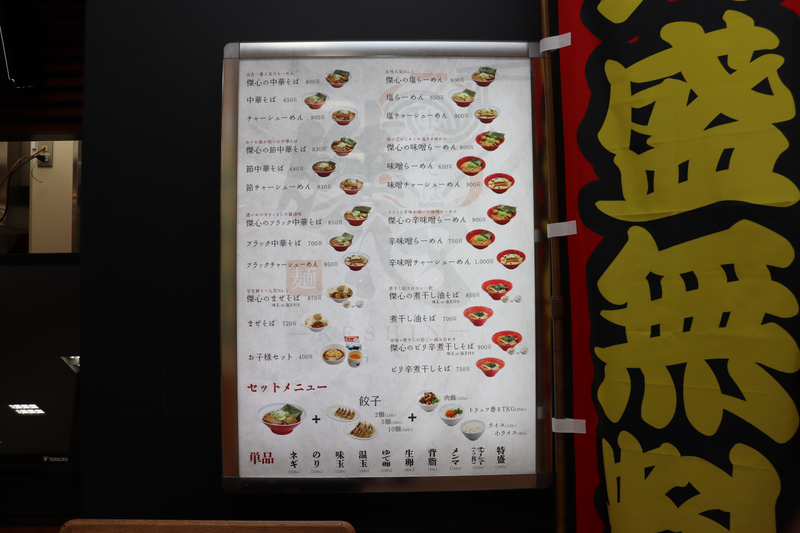 傑心の中華そば 800円
中華そば 650円
チャーシューめん 900円
傑心の節中華そば 830円
節中華そば 680円
節チャーシューめん 930円
傑心のブラック中華そば 850円
ブラック中華そば 700円
ブラックチャーシューめん 950円
傑心のまぜそば 870円
まぜそば 720円
お子様セット 400円
傑心の塩らーめん 800円
塩らーめん 650円
塩チャーシューめん 900円
傑心の味噌らーめん 800円
味噌らーめん 650円
味噌チャーシューめん 900円
傑心の辛味噌らーめん 900円
辛味噌らーめん 750円
辛味噌チャーシューめん 1,000円
傑心の煮干し油そば 850円
煮干し油そば 700円
傑心のピリ辛煮干しそば 900円
ピリ辛煮干しそば 750円
麺
セットメニュー
餃子
2個
5個
10個
+
+
肉飯
トリュフ香るTKG
ライス
小ライス
単品
ネギ
のり
味玉
温玉
ゆで卵
生卵
背脂
メンマ
特盛
盛
無